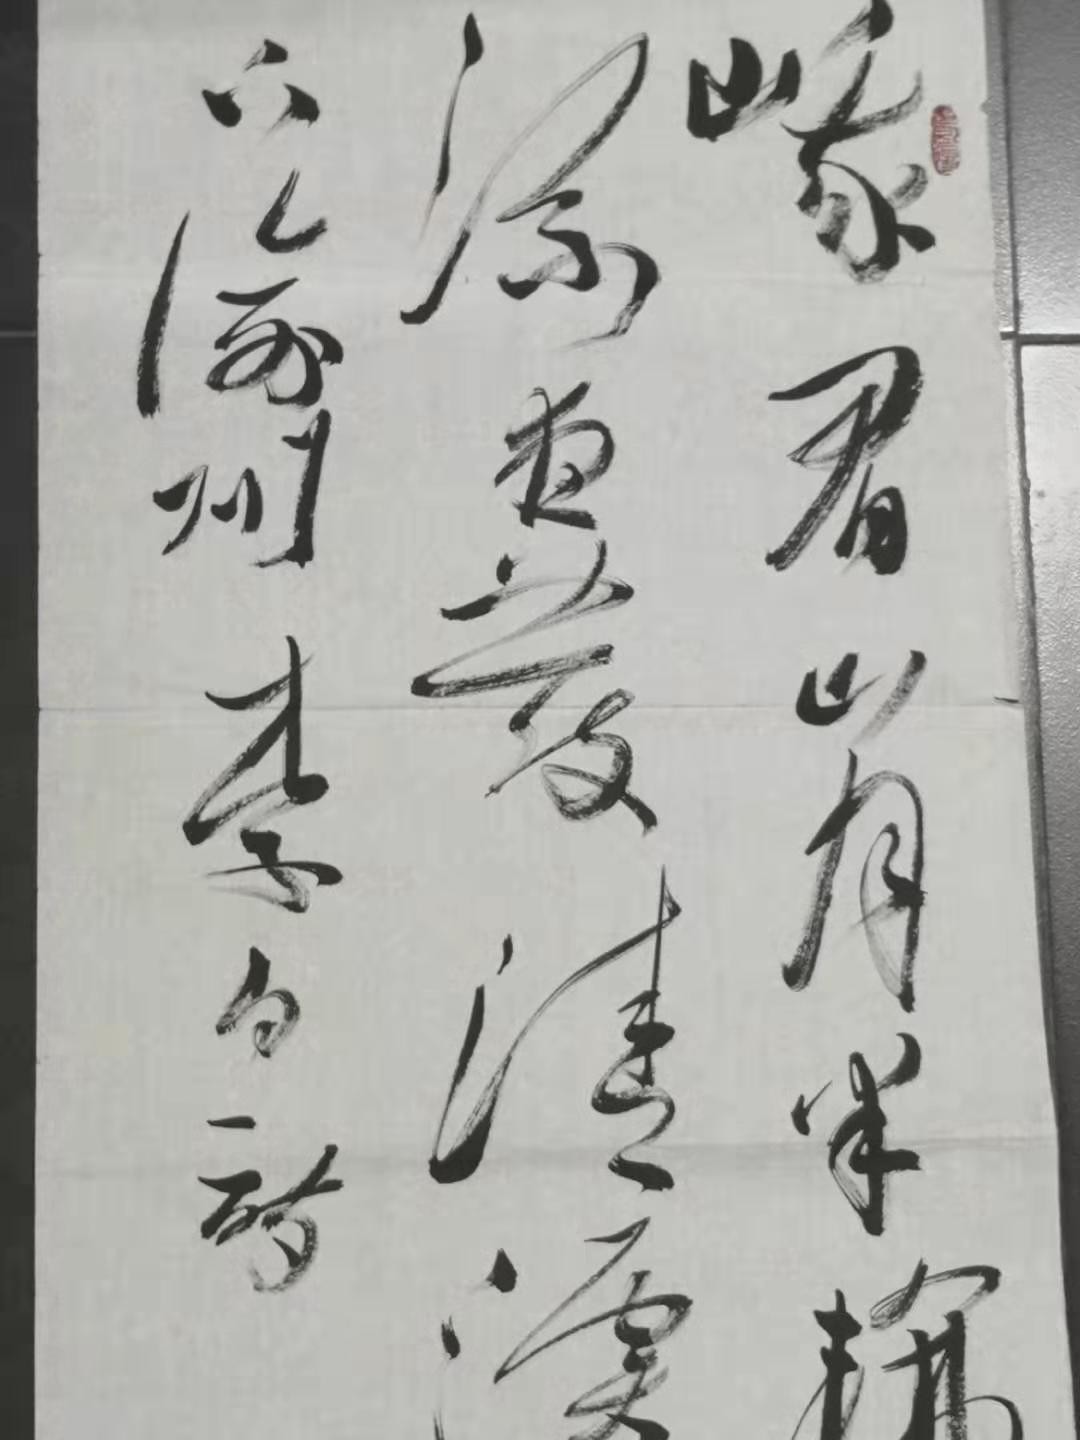 峨眉山月半輪
流夜發清溪
下渝州李白詩